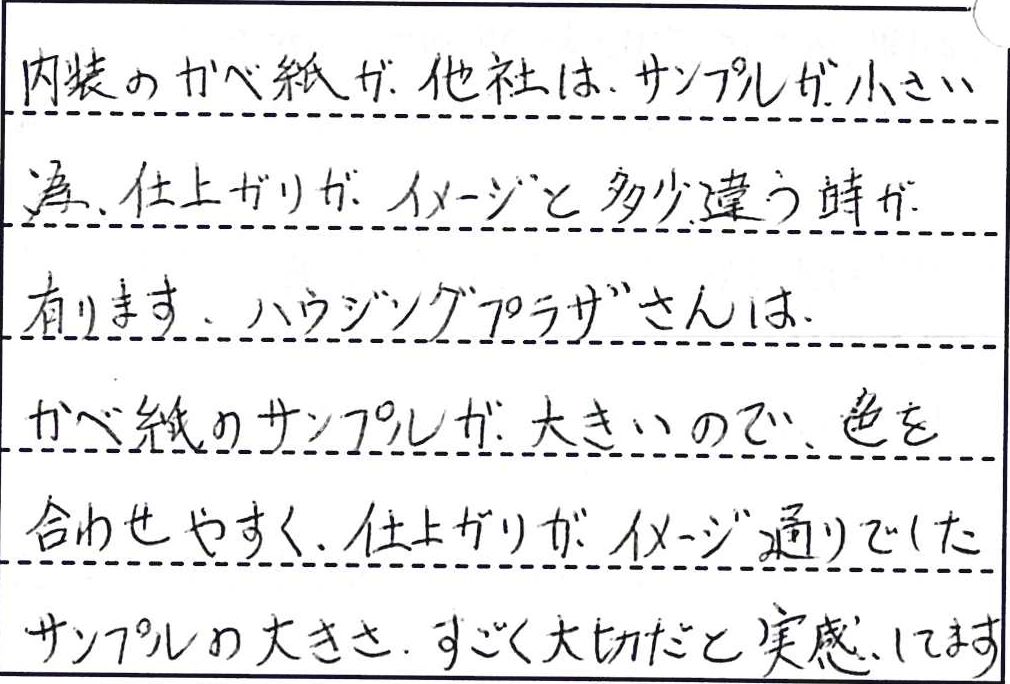 内装のかべ紙が、他社は、サンプルが、小さい
為、仕上がりが、イメージと多少違う時が、
有ります、ハウジングプラザさんは、
かべ紙のサンプルが、大きいので、色を
合わせやすく、仕上がりが、イメージ通りでした
サンプルの大きさ、すごく大切だと実感してます